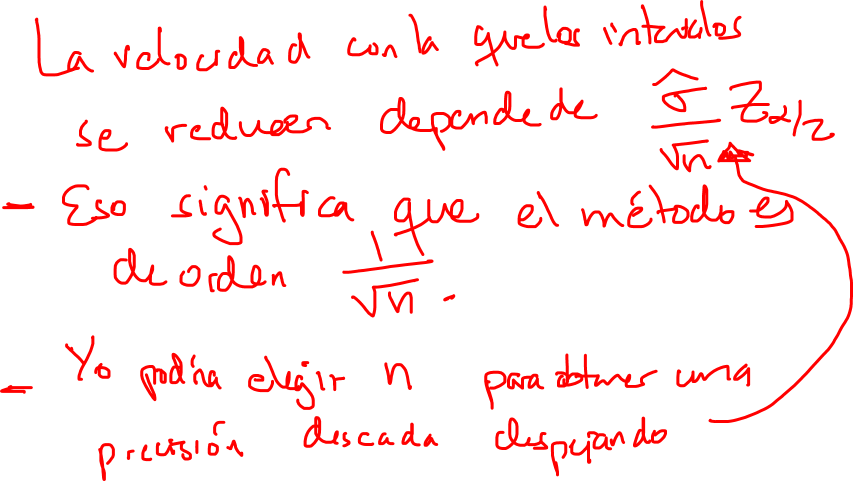 La velocidad con la que los intervalos
se reducen depende de $\frac{\hat{\sigma}}{\sqrt{n}} Z_{\alpha/2}$
- Eso significa que el método es
de orden $\frac{1}{\sqrt{n}}$.
- Yo podría elegir n para obtener una
precisión deseada despejando